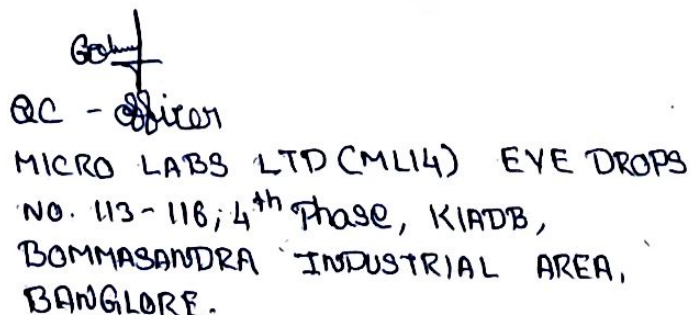 QC - Officer
MICRO LABS LTD (ML14) EYE DROPS
NO. 113-116, 4th Phase, KIADB,
BOMMASANDRA INDUSTRIAL AREA,
BANGLORE.